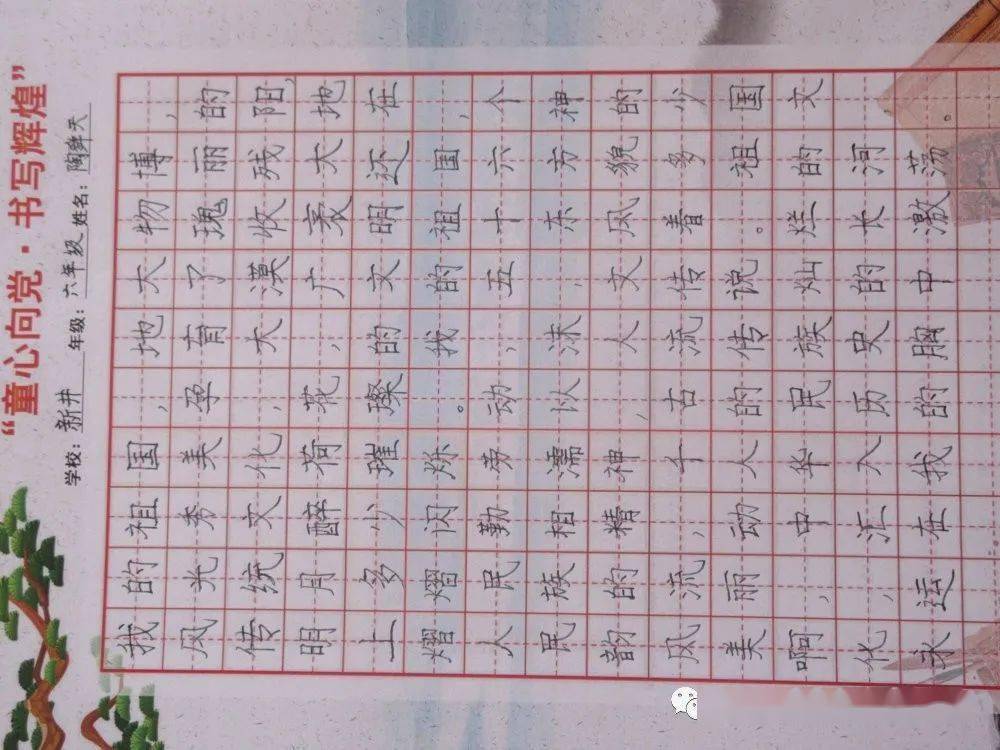 “童心向党·书写辉煌”
学校：新井 年级：六年级 姓名：陶舜天
我的祖国，地大物博，
风光秀美孕育了瑰丽的
传统文化，大漠收残阳，
明月醉荷花，广袤大地
上多少璀璨的文明还在
熠熠闪烁。我的祖国，
人民勤劳动，五十六个
民族相濡以沫，东方神
韵的精神，人文风貌的
风流，千古流传着多少
美丽动人的传说。祖国
啊，中华民族灿烂的文
化，汇入历史的长河，
永远在我的胸中激荡。